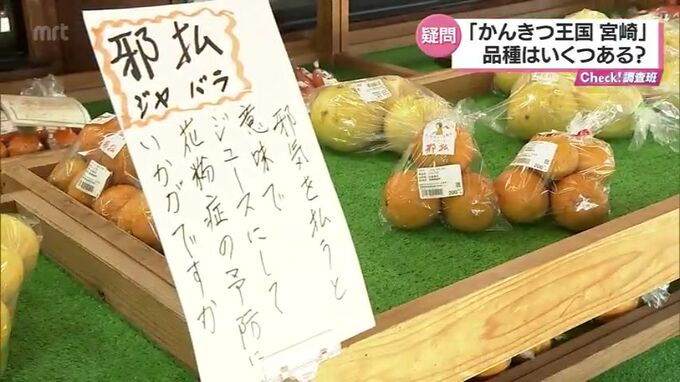 mrt
疑問
「かんきつ王国 宮崎」
品種はいくつある?
Check!調査班
邪払
ジャバラ
邪気を払うと
意味で
ジュースにして
花粉症の予防に
いかがですか
邪払